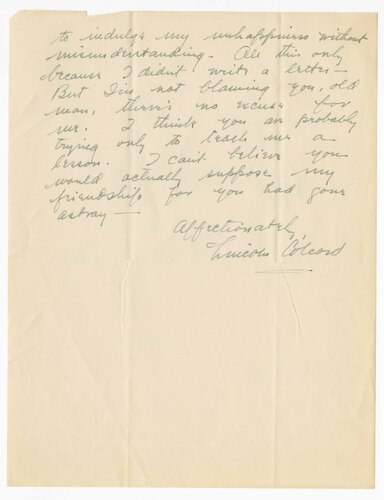 to indulge my unhappiness without
misunderstanding. All this only
because I didn't write a letter —
But I'm not blaming you, old
man, there's no excuse for
me. I think you are probably
trying only to teach me a
lesson. I can't believe you
would actually suppose my
friendship for you had gone
astray —
Affectionately,
Lincoln Colcord